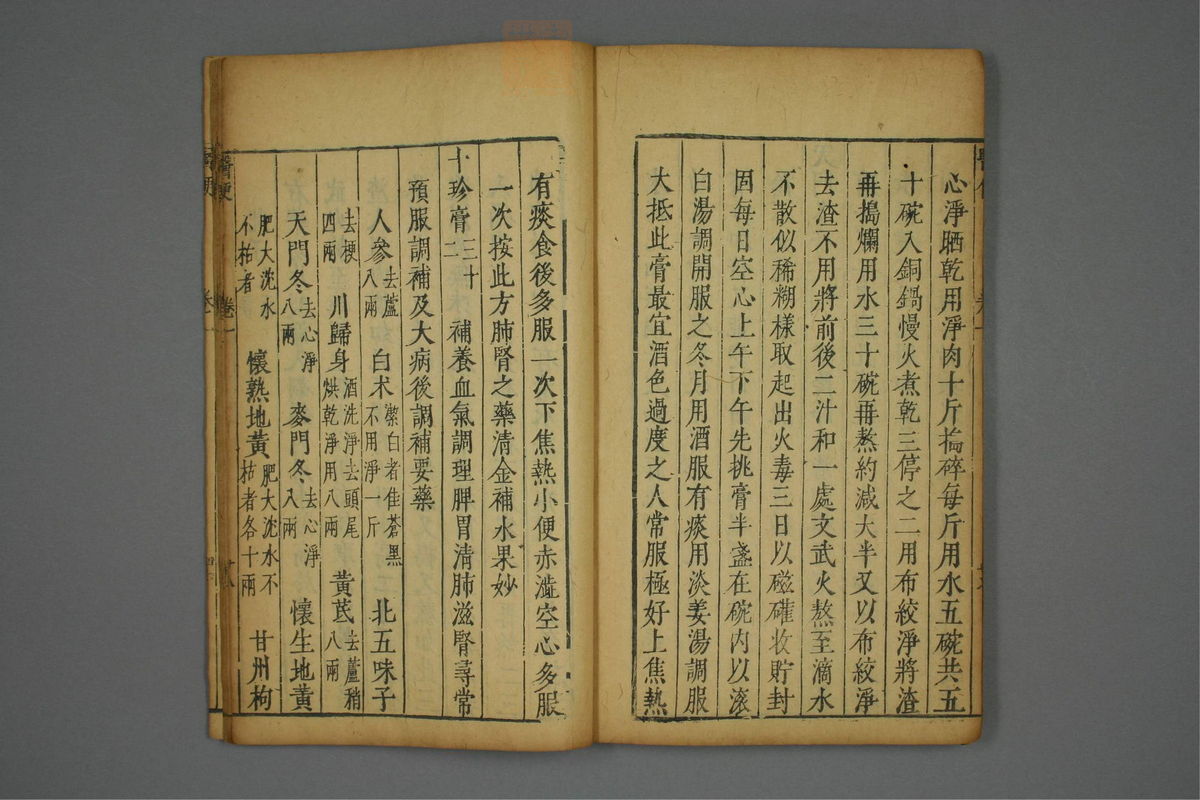 心淨晒乾用淨肉十斤搗碎每斤用水五碗共五
十碗入銅鍋慢火煮乾三停之二用布絞淨將渣
再搗爛用水三十碗再熬約減大半又以布絞淨
去渣不用將前後二汁和一處文武火熬至滴水
不散似稀糊樣取起出火毒三日以磁礶收貯封
固每日空心上午下午先挑膏半盞在碗内以滚
白湯調開服之冬月用酒服有痰用淡姜湯調服
大抵此膏最宜酒色過度之人常服極好上焦熱
有痰食後多服一次下焦熱小便赤澁空心多服
一次按此方肺腎之藥清金補水果妙
十珍膏三十二 補養血氣調理脾胃清肺滋腎尋常
預服調補及大病後調補要藥
人參去蘆八兩 白术潔白者佳蒼黑不用淨一斤 北五味子
去梗四兩 川歸身酒洗淨去頭尾烘乾淨用八兩 黃芪去蘆稍八兩
天門冬去心淨八兩 麥門冬去心淨八兩 懷生地黃
肥大沈水不枯者 懷熟地黃肥大沈水不枯者各十兩 甘州枸
醫便 卷一